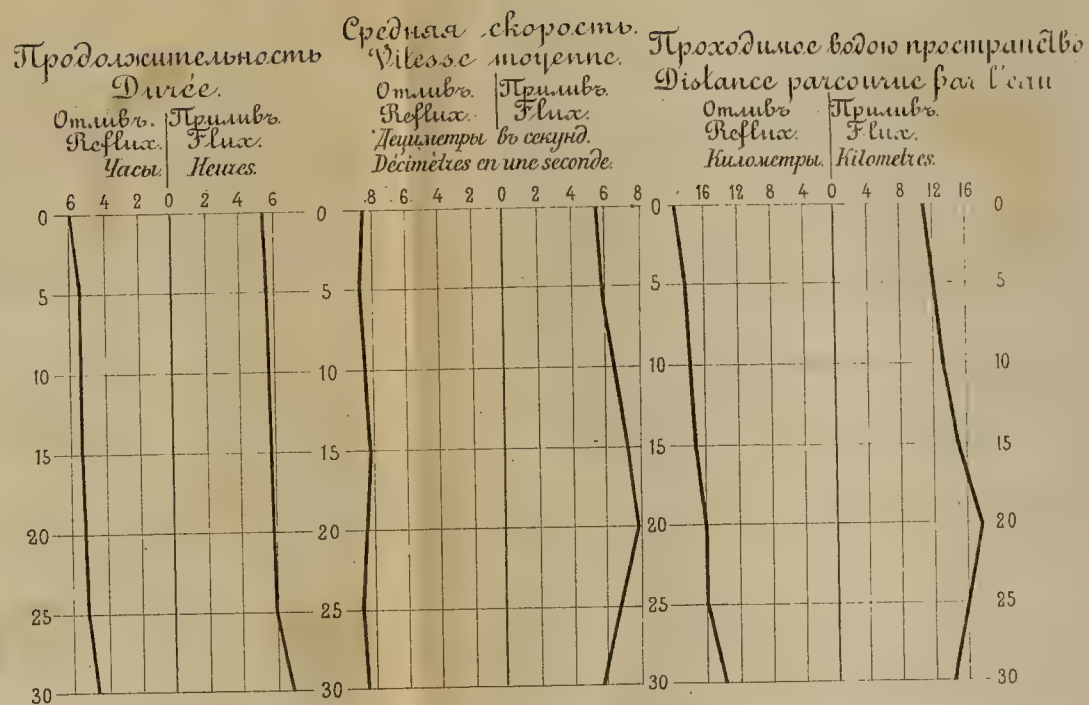 Продолжительность
Durée.
Отливъ. Приливъ.
Reflux. Flux.
Часы. Heures.
6 4 2 0 2 4 6
0
5
10
15
20
25
30
Средняя скорость.
Vitesse moyenne.
Отливъ. Приливъ.
Reflux. Flux.
Дециметры въ секунд.
Décimètres en une seconde.
8 6 4 2 0 2 4 6 8
0
5
10
15
20
25
30
Проходимое водою пространство
Distance parcourue par l'eau
Отливъ Приливъ.
Reflux. Flux.
Километры. Kilometres.
16 12 8 4 0 4 8 12 16
0 0
5 5
10 10
15 15
20 20
25 25
30 30